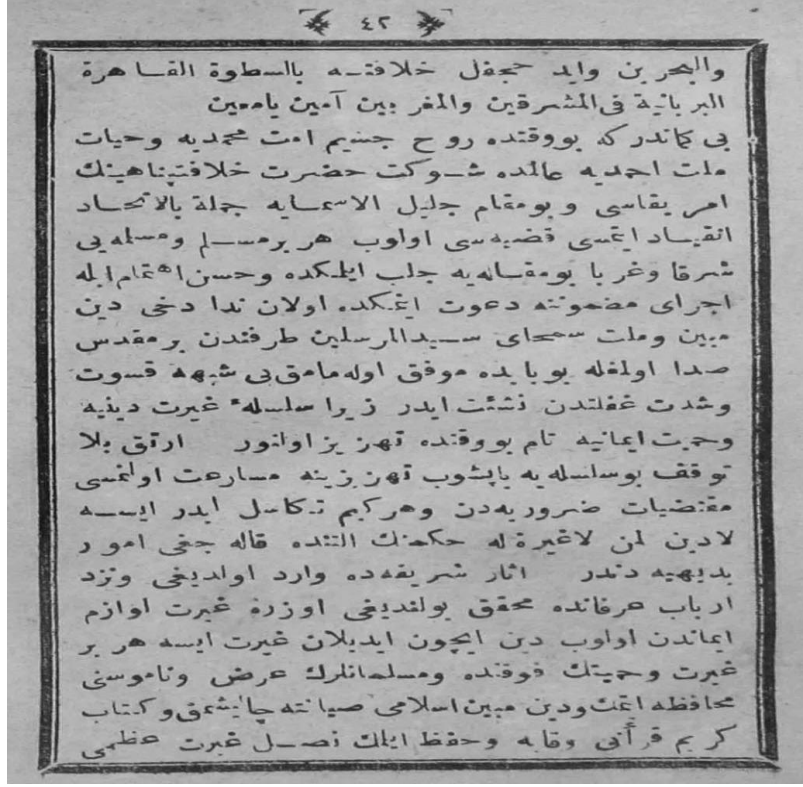 ٤٢
والبحرين وايد جحفل خلافتـه بالسطوة القـاهرة
البربانية فى المشرقين والمغربين آمين يامعين
بى كماندركه بووقتده روح جسيم امت محمديه وحيات
ملت احمديه عالمده شـوكت حضرت خلافتپناهينك
امر بقاسى وبومقام جليل الاسمـايه جملة بالاتحـاد
انقيـاد ايتمسى قضيه‌سى اولوب هر برمسـلم ومسلمه‌يى
شرقا وغربا بومقـاله‌يه جلب ايلمكده وحسن اهتمام ايله
اجراى مضموننه دعوت ايتمكده اولان ندا دخى دين
مبين وملت سمحاى سـيدالمرسلين طرفندن برمقدس
صدا اولمغله بوبابده موفق اوله‌مامق بى شبهه قسوت
وشدت غفلتدن نشئت ايدر زيرا سلسلهٴ غيرت دينيه
وحميت ايمانيه تام بووقتده تهزيز اولنور ارتق بلا
توقف بوسلسله‌يه ياپشوب تهزيزينه مسارعت اولنمسى
مقتضيات ضروريه‌دن وهركيم تـكاسل ايدر ايسـه
لادين لمن لاغيرة له حكمنك التنده قاله جغى امور
بديهيه دندر اثار شريفه‌ده وارد اولديغى ونزد
ارباب عرفانده محقق بولنديغى اوزره غيرت لوازم
ايماندن اولوب دين ايچون ايديلان غيرت ايسه هر بر
غيرت وحميتك فوقنده ومسلمانلرك عرض وناموسنى
محافظه ايتمك ودين مبين اسلامى صيانته چاليشمق وكتاب
كريم قرأنى وقايه وحفظ ايلمك نصـل غيرت عظمى